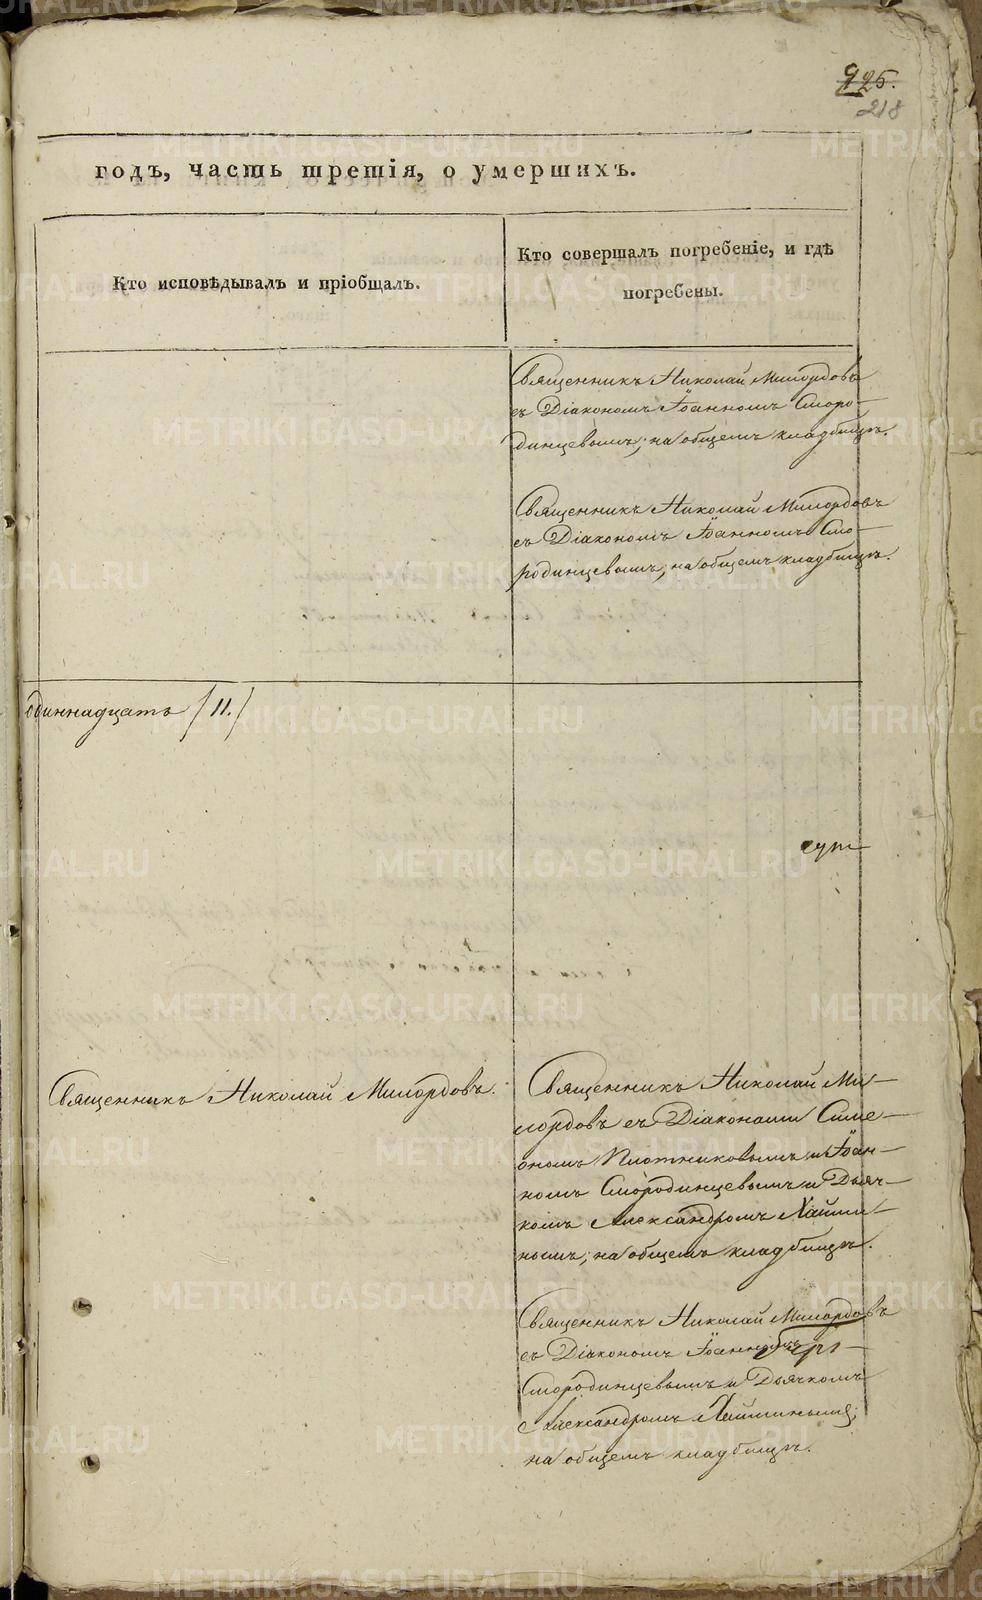 925.
218
годъ, часть третія, о умершихъ.
Кто исповѣдывалъ и пріобщалъ.
Кто совершалъ погребеніе, и гдѣ
погребены.
Священникъ Николай Милордовъ
съ Діакономъ Іоанномъ Сморо-
динцевымъ; на общемъ кладбищѣ.
Священникъ Николай Милордовъ
съ Діакономъ Іоанномъ Смо-
родинцевымъ; на общемъ кладбищѣ.
одиннадцать /11./
Священникъ Николай Милордовъ.
Священникъ Николай Ми-
лордовъ съ Діаконами Симе-
ономъ Плотниковымъ и Іоан-
номъ Смородинцевымъ и Дьяч-
комъ Александромъ
на общемъ кладбищѣ.
Священникъ Николай Милордовъ
съ Діакономъ Іоанномъ
Смородинцевымъ и Дьячкомъ
Александромъ
на общемъ кладбищѣ.
METRIKI.GASO-URAL.RU